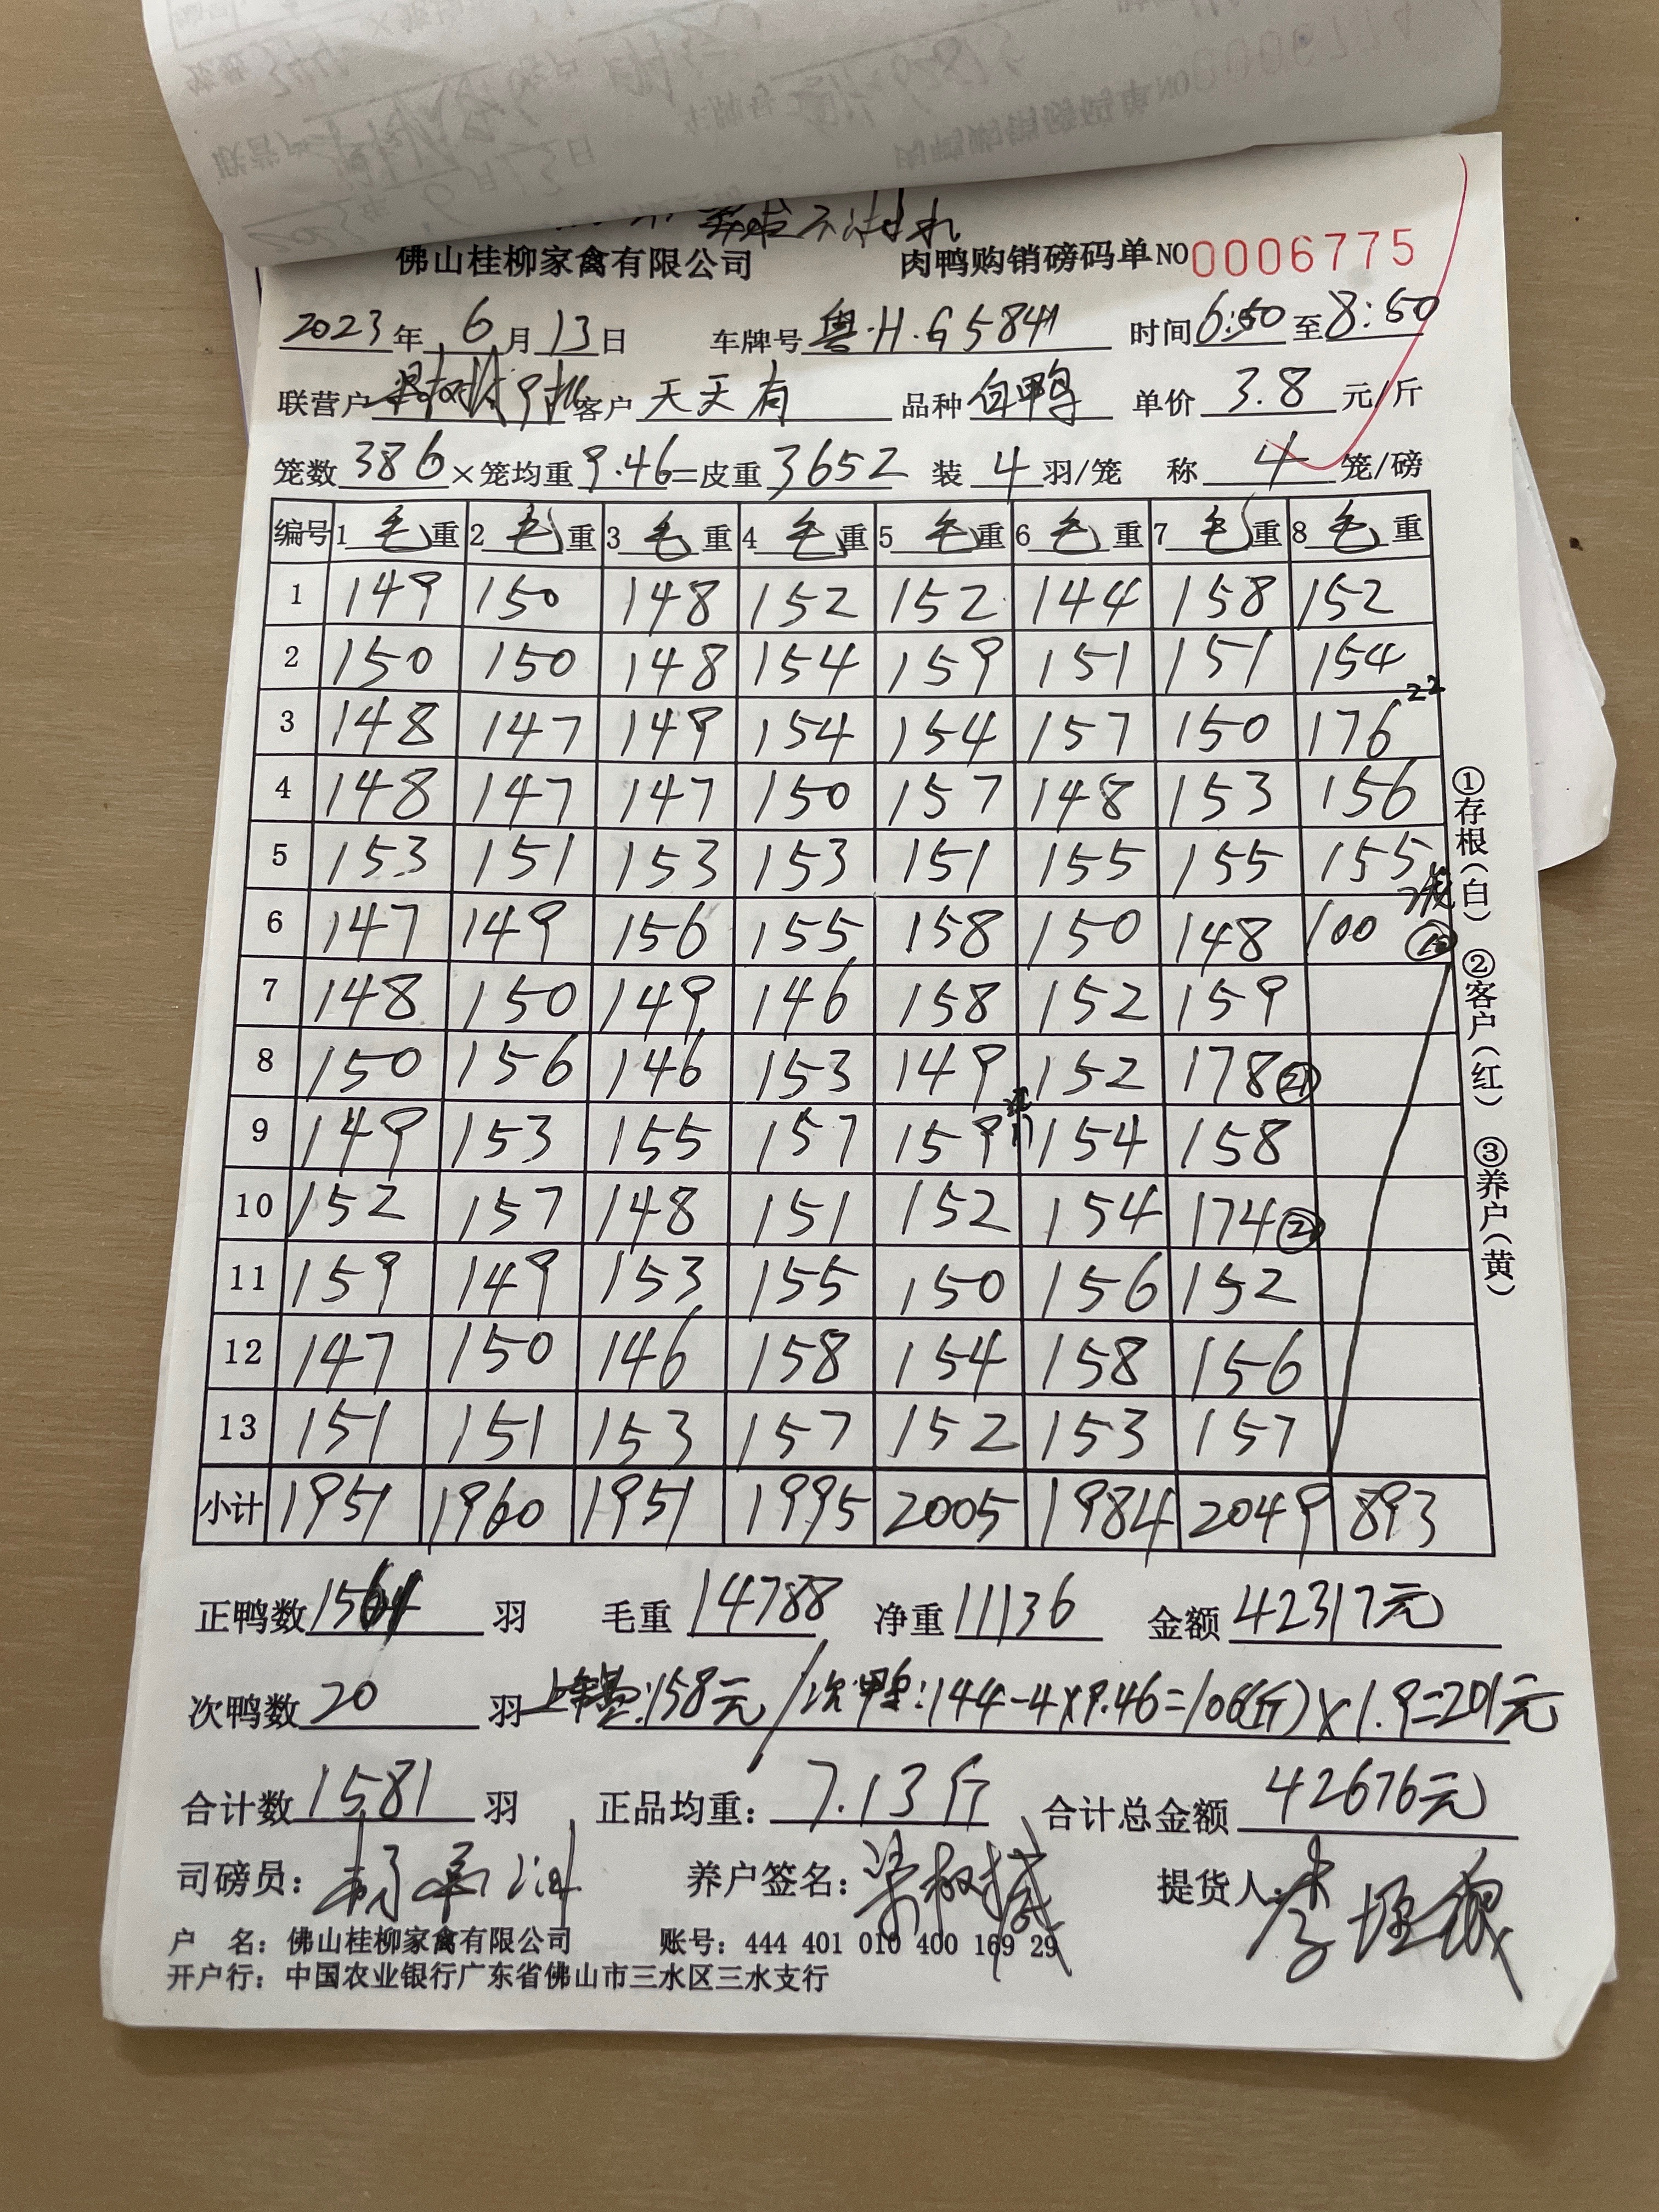 佛山桂柳家禽有限公司 肉鸭购销磅码单NO 0006775
2023年6月13日 车牌号 粤·H·G5841 时间6:50至8:50
联营户 客户 天天有 品种 白鸭 单价 3.8 元/斤
笼数 386 ×笼均重 9.46 =皮重 3652 装 4 羽/笼 称 4 笼/磅
编号 1 毛 重 2 毛 重 3 毛 重 4 毛 重 5 毛 重 6 毛 重 7 毛 重 8 毛 重
1 149 150 148 152 152 144 158 152
2 150 150 148 154 159 151 151 154
3 148 147 149 154 154 157 150 176 22
4 148 147 147 150 157 148 153 156
5 153 151 153 153 151 155 155 155
6 147 149 156 155 158 150 148 100
7 148 150 149 146 158 152 159
8 150 156 146 153 149 152 178
9 149 153 155 157 159 154 158
10 152 157 148 151 152 154 174
11 159 149 153 155 150 156 152
12 147 150 146 158 154 158 156
13 151 151 153 157 152 153 157
小计 1951 1960 1951 1995 2005 1984 2049 893
①存根(白) ②客户(红) ③养户(黄)
正鸭数 1561 羽 毛重 14788 净重 11136 金额 42317元
次鸭数 20 羽 :158元/次鸭:144-4×9.46=106(斤)×1.9=201元
合计数 1581 羽 正品均重: 7.13斤 合计总金额 42676元
司磅员: 养户签名: 提货人:
户 名: 佛山桂柳家禽有限公司 账号: 444 401 010 400 169 29
开户行: 中国农业银行广东省佛山市三水区三水支行